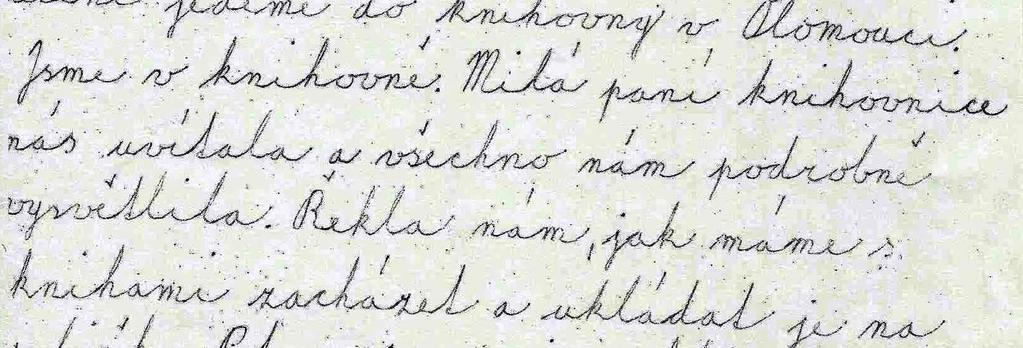 jedeme do knihovny v Olomouci.
Jsme v knihovně. Milá paní knihovnice
nás uvítala a všechno nám podrobně
vysvětlila. Řekla nám, jak máme s
knihami zacházet a ukládat je na